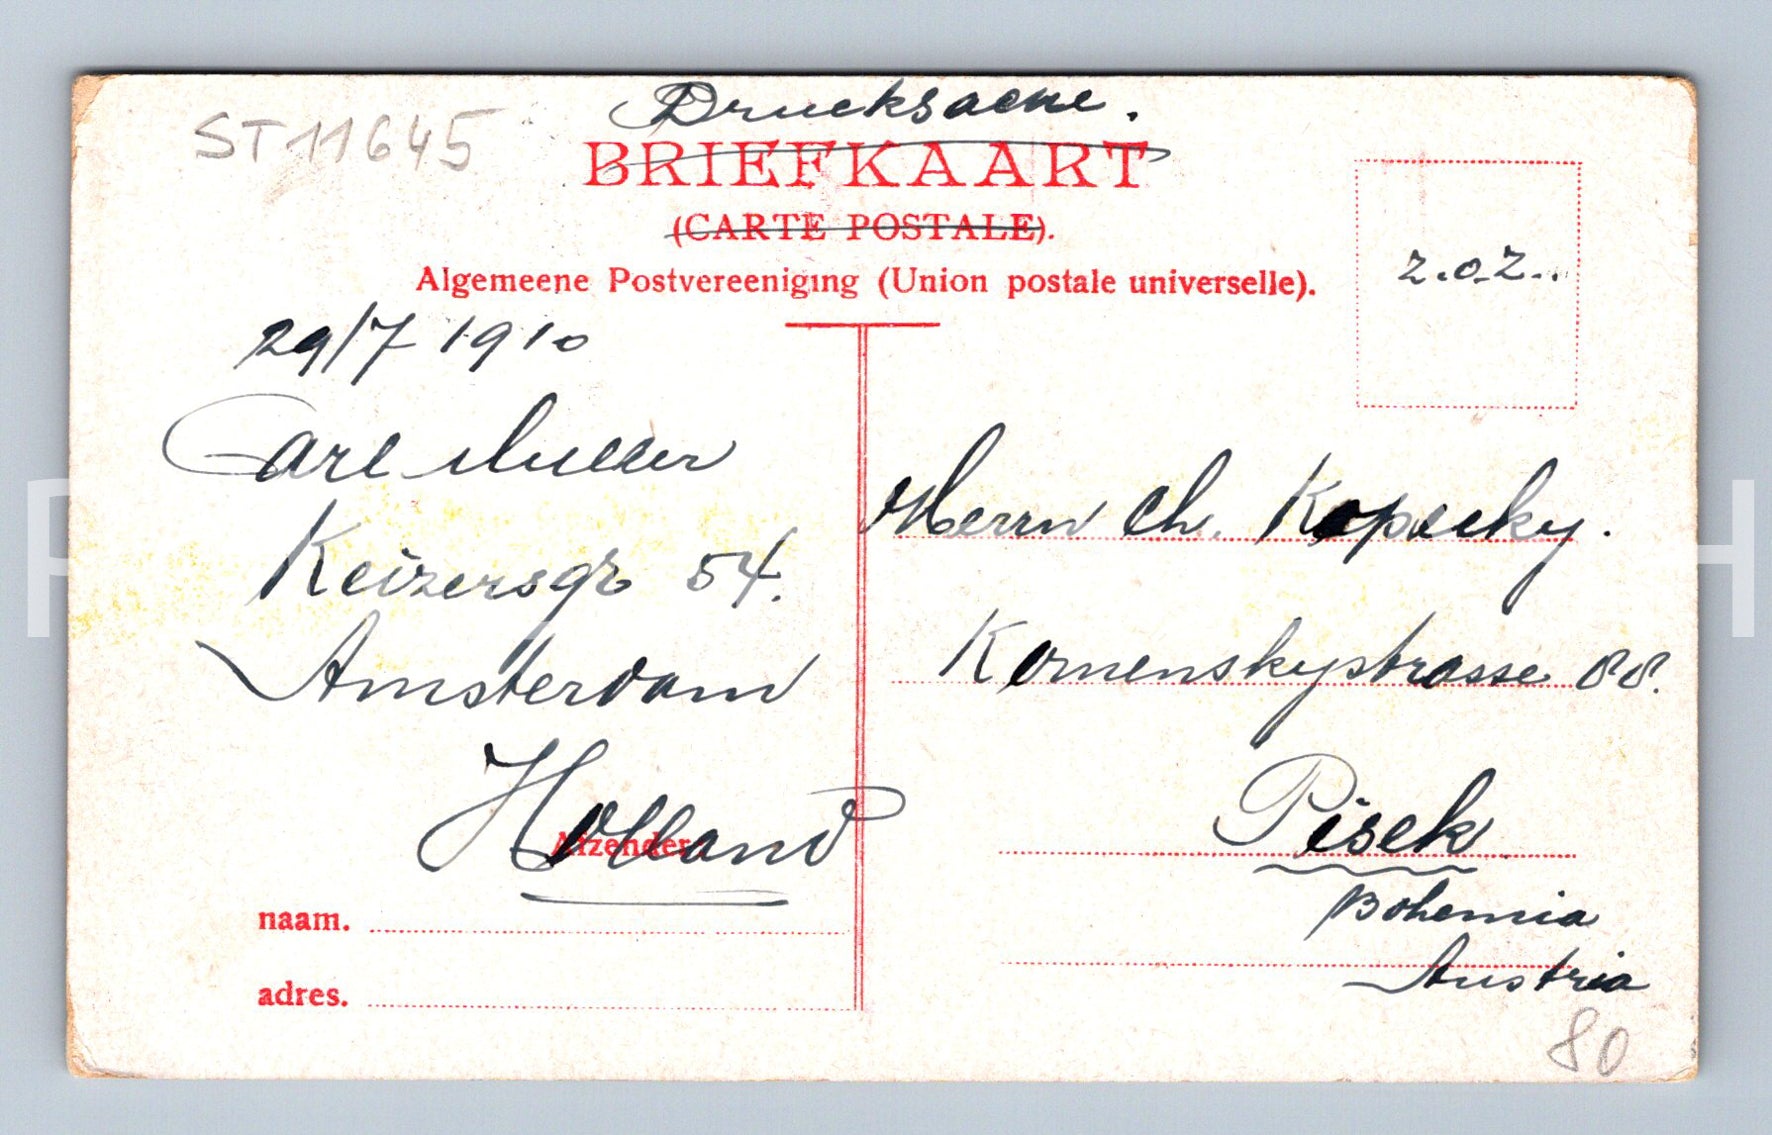 ST11645
Drucksache.
BRIEFKAART
(CARTE POSTALE).
Algemeene Postvereeniging (Union postale universelle).
z.o.Z..
29/7 1910
Carl Muller
Keizersgr 54.
Amsterdam
Holland
Afzender
naam.
adres.
Herrn Ch. Kopecky.
Komenskystrasse 88.
Pisek
Bohemia
Austria
80